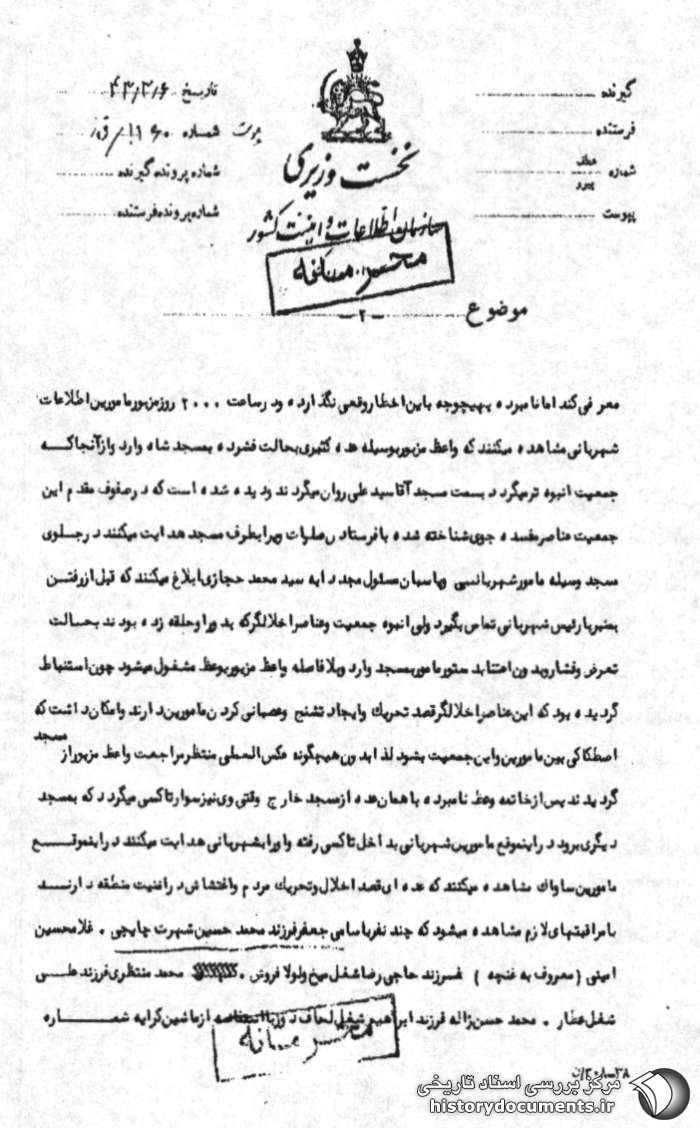 گیرنده
فرستنده
شماره عطف پیرو
پیوست
نخست وزیری
سازمان اطلاعات و امنیت کشور
خیلی محرمانه
تاریخ ۴۳/۲/۶
شماره
شماره پرونده گیرنده
شماره پرونده فرستنده
موضوع
-۲-
معرفی کند اما نامبرده بهیچوجه باین اخطار وقعی نگذارده و در ساعت ۲۰۰۰ روز مزبور مامورین اطلاعات
شهربانی مشاهده میکنند که واعظ مزبور بوسیله عده کثیری بحالت فشرده بمسجد شاه وارد و از آنجا که
جمعیت انبوه تر میگردد بسمت مسجد آقا سید علی روان میگردند و دیده شده است که در صفوف مقدم این
جمعیت عناصر مفسده جوی شناخته شده با فرستادن صلوات ویرا بطرف مسجد هدایت میکنند در جلوی
مسجد وسیله مامور شهربانی و پاسبان مسئول مجددا به سید محمد حجازی ابلاغ میکنند که قبل از رفتن
بمنبر با رئیس شهربانی تماس بگیرد ولی انبوه جمعیت و عناصر اخلالگر که بدور او حلقه زده بودند بحالت
تعرض و فشار وبدون اعتنا بدستور مامور بمسجد وارد و بلافاصله واعظ مزبور بوعظ مشغول میشود چون استنباط
گردیده بود که این عناصر اخلالگر قصد تحریک و ایجاد تشنج و عصبانی کردن مامورین دارند و امکان داشت که
اصطکاکی بین مامورین و این جمعیت بشود لذا بدون هیچگونه عکس العملی منتظر مراجعت واعظ مزبور از مسجد
گردیدند پس از خاتمه وعظ نامبرده با همان عده از مسجد خارج وقتی وی نیز سوار تاکسی میگردد که بمسجد
دیگری برود در اینموقع مامورین شهربانی بداخل تاکسی رفته و او را بشهربانی هدایت میکنند در اینموقع
مامورین ساواک مشاهده میکنند که عده ای قصد اخلال و تحریک مردم و اغتشاش در امنیت منطقه دارند
با مراقبتهای لازم مشاهده میشود که چند نفر باسامی جعفر فرزند محمد حسین شهرت چایچی . غلامحسین
امینی (معروف به غنچه) فرزند حاجی رضا شغل میخ و لولا فروش . محمد منتظری فرزند علی
شغل عطار . محمد حسن ژاله فرزند ابراهیم شغل لحاف دوز با استفاده از ماشین کرایه شماره
خیلی محرمانه
مرکز بررسی اسناد تاریخی
historydocuments.ir